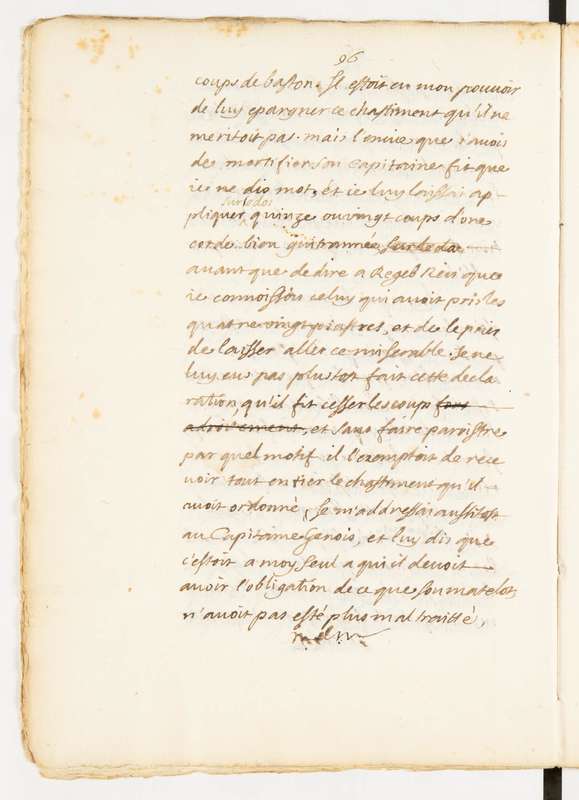 96
coups de baston. Il estoit en mon pouvoir
de luy epargner ce chastiment qu'il ne
meritoit pas. mais l'envie que j'avois
de mortifier son Capitaine fit que
ie ne dis mot, et ie luy laissai ap-
sur le dos
pliquer quinze ou vingt coups d'une
corde bien sur le dos
auant que de dire a Regeb Reis que
ie connoissois celuy qui avoit pris les
quatre vingt piastres, et de le prier
de laisser aller ce miserable. Je ne
luy eus pas plustost fait cette decla
ration, qu'il fit cesser les coups
adroitement, et sans faire paroistre
par quel motif il l'exemptoit de rece
uoir tout entier le chastiment qu'il
avoit ordonné, Je m'addressai aussitost
au Capitaine Genois, et luy dis que
c'estoit a moy seul a qui il devoit
avoir l'obligation de ce que son matelot
n'avoit pas esté plus mal traitté,